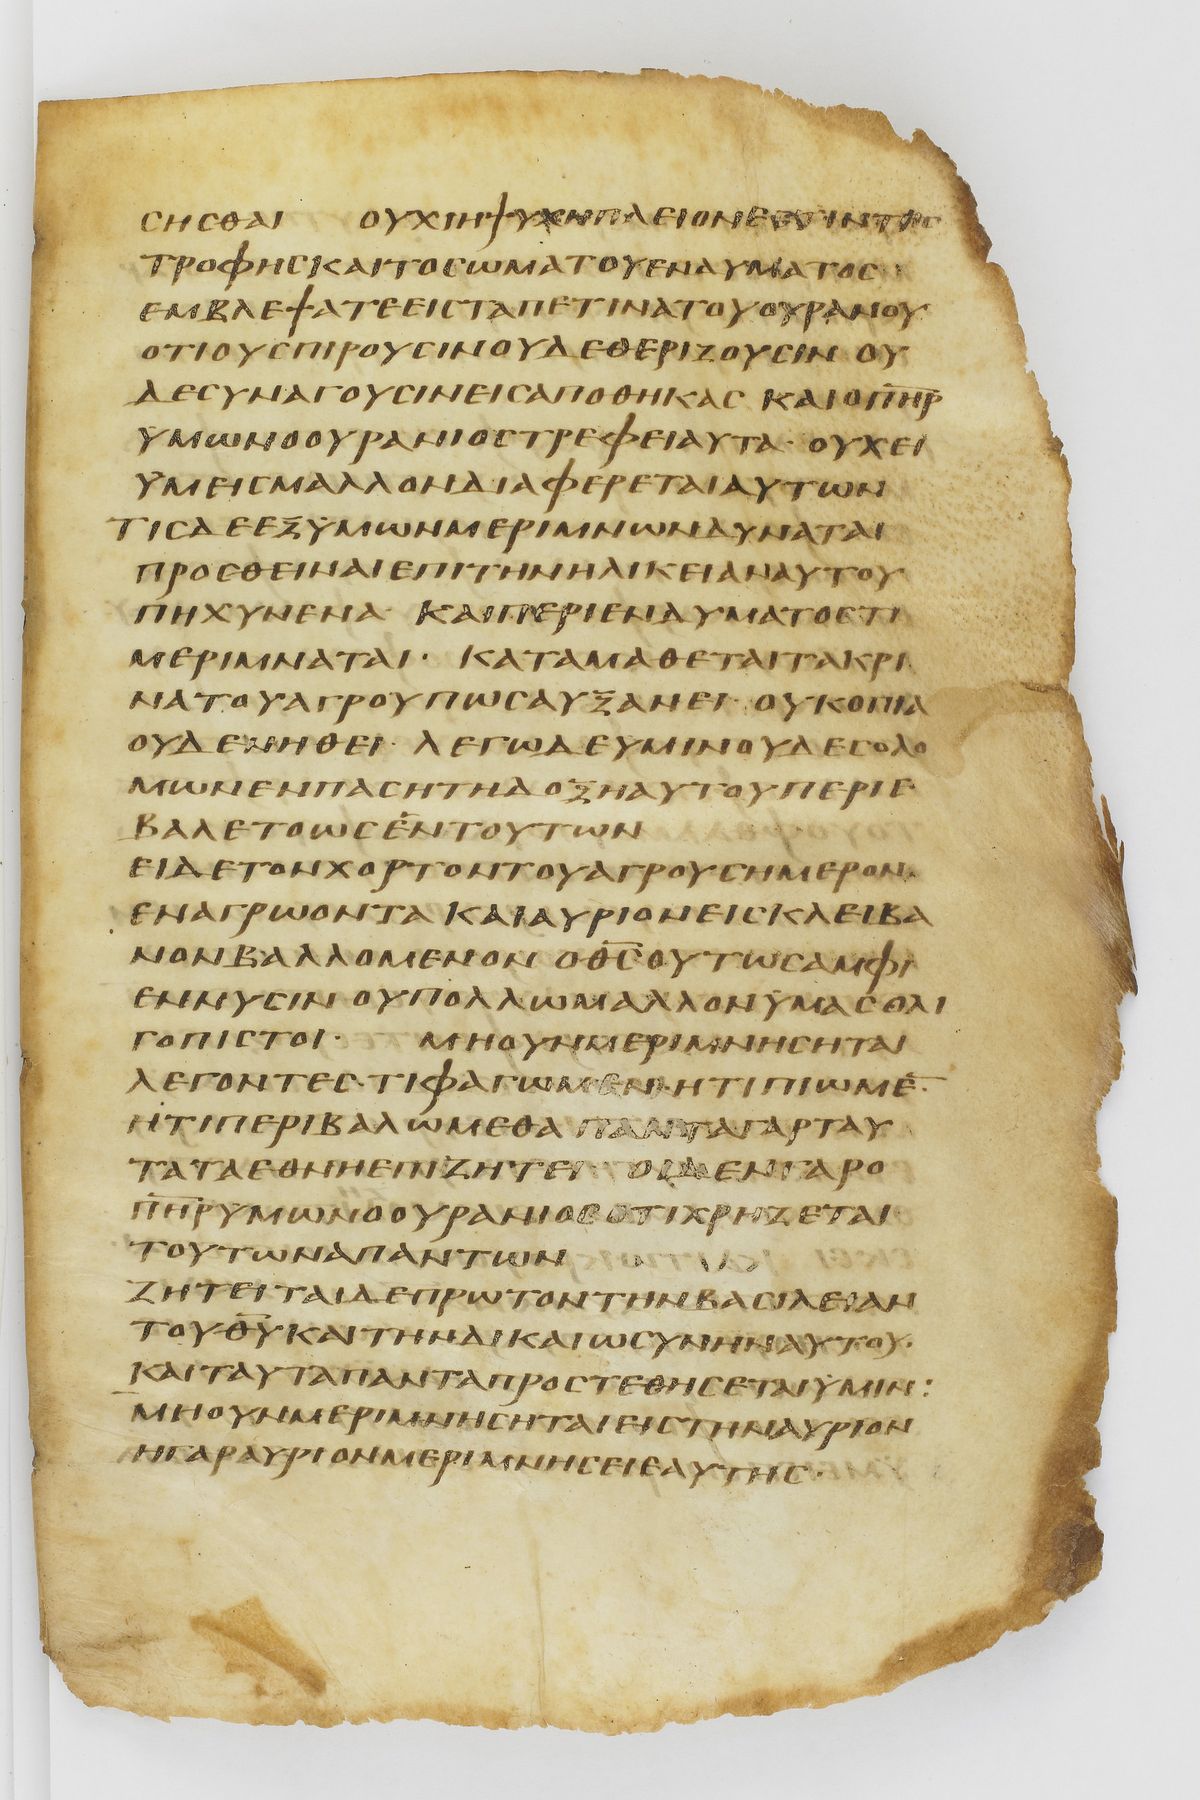 ϹΗϹΘΑΙ ΟΥΧΙΗΨΥΧΗΠΛΕΙΟΝΕϹΤΙΝΤΗϹ
ΤΡΟΦΗϹΚΑΙΤΟϹΩΜΑΤΟΥΕΝΔΥΜΑΤΟϹ
ΕΜΒΛΕΨΑΤΕΕΙϹΤΑΠΕΤΙΝΑΤΟΥΟΥΡΑΝΟΥ
ΟΤΙΟΥϹΠΙΡΟΥϹΙΝΟΥΔΕΘΕΡΙΖΟΥϹΙΝ ΟΥ
ΔΕϹΥΝΑΓΟΥϹΙΝΕΙϹΑΠΟΘΗΚΑϹ ΚΑΙΟΠ̅Η̅Ρ̅
ΥΜΩΝΟΟΥΡΑΝΙΟϹΤΡΕΦΕΙΑΥΤΑ· ΟΥΧΕΙ
ΫΜΕΙϹΜΑΛΛΟΝΔΙΑΦΕΡΕΤΑΙΑΥΤΩΝ
ΤΙϹΔΕΕΞΫΜΩΝΜΕΡΙΜΝΩΝΔΥΝΑΤΑΙ
ΠΡΟϹΘΕΙΝΑΙΕΠΙΤΗΝΗΛΙΚΕΙΑΝΑΥΤΟΥ
ΠΗΧΥΝΕΝΑ· ΚΑΙΠΕΡΙΕΝΔΥΜΑΤΟϹΤΙ
ΜΕΡΙΜΝΑΤΑΙ· ΚΑΤΑΜΑΘΕΤΑΙΤΑΚΡΙ
ΝΑΤΟΥΑΓΡΟΥΠΩϹΑΥΞΑΝΕΙ· ΟΥΚΟΠΙΑ
ΟΥΔΕΝΗΘΕΙ· ΛΕΓΩΔΕΥΜΙΝΟΥΔΕϹΟΛΟ
ΜΩΝΕΝΠΑϹΗΤΗΔΟΞΗΑΥΤΟΥΠΕΡΙΕ
ΒΑΛΕΤΟΩϹΕΝΤΟΥΤΩΝ
ΕΙΔΕΤΟΝΧΟΡΤΟΝΤΟΥΑΓΡΟΥϹΗΜΕΡΟΝ
ΕΝΑΓΡΩΟΝΤΑ ΚΑΙΑΥΡΙΟΝΕΙϹΚΛΕΙΒΑ
ΝΟΝΒΑΛΛΟΜΕΝΟΝ ΟΘ̅Ϲ̅ΟΥΤΩϹΑΜΦΙ
ΕΝΝΥϹΙΝ ΟΥΠΟΛΛΩΜΑΛΛΟΝΫΜΑϹΟΛΙ
ΓΟΠΙϹΤΟΙ· ΜΗΟΥΝΜΕΡΙΜΝΗϹΗΤΑΙ
ΛΕΓΟΝΤΕϹ· ΤΙΦΑΓΩΜΕΝ·ΗΤΙΠΙΩΜΕ̅·
ΗΤΙΠΕΡΙΒΑΛΩΜΕΘΑ ΠΑΝΤΑΓΑΡΤΑΥ
ΤΑΤΑΕΘΝΗΕΠΙΖΗΤΕΙ ΟΙΔΕΝΓΑΡΟ
Π̅Η̅Ρ̅ΥΜΩΝΟΟΥΡΑΝΙΟϹΟΤΙΧΡΗΖΕΤΑΙ
ΤΟΥΤΩΝΑΠΑΝΤΩΝ
ΖΗΤΕΙΤΑΙΔΕΠΡΩΤΟΝΤΗΝΒΑϹΙΛΕΙΑΝ
ΤΟΥΘ̅Υ̅ΚΑΙΤΗΝΔΙΚΑΙΩϹΥΝΗΝΑΥΤΟΥ·
ΚΑΙΤΑΥΤΑΠΑΝΤΑΠΡΟϹΤΕΘΗϹΕΤΑΙΫΜΙΝ:
ΜΗΟΥΝΜΕΡΙΜΝΗϹΗΤΑΙΕΙϹΤΗΝΑΥΡΙΟΝ
ΗΓΑΡΑΥΡΙΟΝΜΕΡΙΜΝΗϹΕΙΕΑΥΤΗϹ·